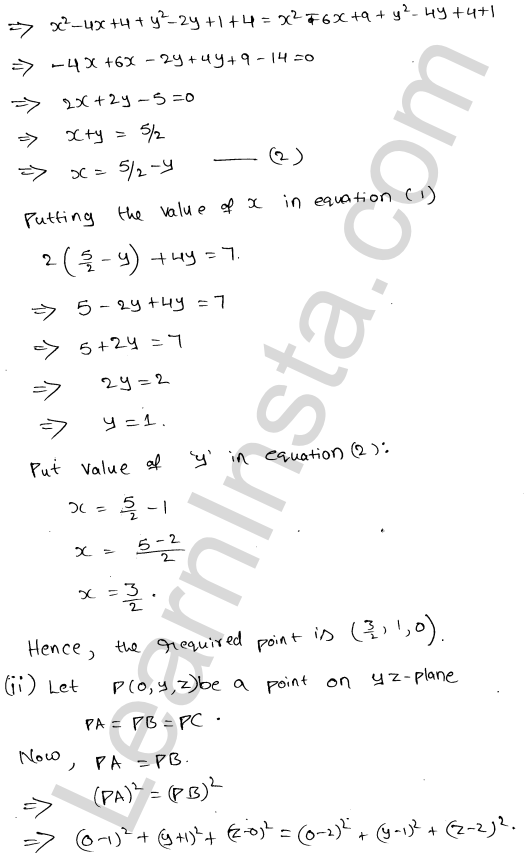 ⇒ x²-4x+4+y²-2y+1+4 = x²-6x+9+y²-4y+4+1
⇒ -4x+6x-2y+4y+9-14=0
⇒ 2x+2y-5=0
⇒ x+y = 5/2
⇒ x = 5/2-y —— (2)
Putting the value of x in equation (1)
2(5/2 - y) + 4y = 7.
⇒ 5-2y+4y = 7
⇒ 5+2y = 7
⇒ 2y = 2
⇒ y = 1.
Put value of 'y' in equation (2):
x = 5/2 - 1
x = (5-2)/2
x = 3/2.
Hence, the required point is (3/2, 1, 0).
(ii) Let P(0,y,z) be a point on yz-plane
PA = PB = PC.
Now, PA = PB.
⇒ (PA)² = (PB)²
⇒ (0-1)² + (y+1)² + (z-0)² = (0-2)² + (y-1)² + (z-2)².
LearnInsta.com